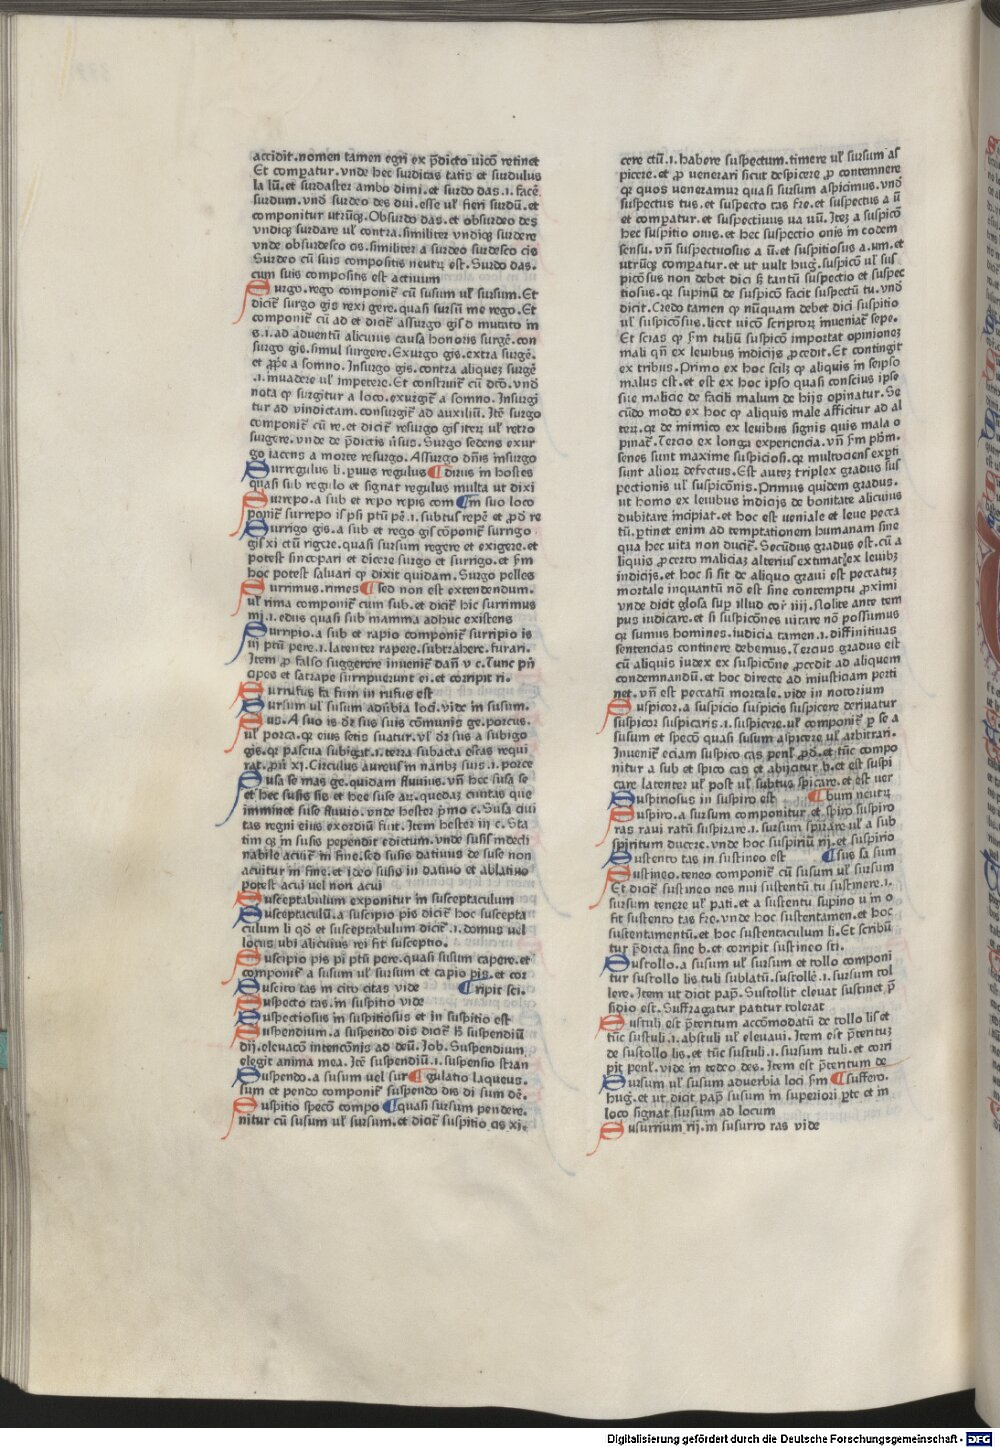 accidit.nomen tamen egri ex p̄dicto uicō retinet
Et comꝑatur.vnde hec surditas tatis et surdulus
la lū.et surdaster ambo dimi.et surdo das.i.facē
surdum.vnd̄ surdeo des dui.esse uł fieri surdū.et
componitur utrūqꝫ.Obsurdo das.et obsurdeo des
vndiqꝫ surdare uł contra.similiter vndiqꝫ surdere
vnde obsurdesco cis.similiter a surdeo surdesco cis
Surdeo cū suis compositis neutrꝫ est.Surdo das.
cum suis compositis est actiuum
Surgo.rego componit̄ cū susum uł sursum.Et
dicit̄ surgo gis rexi gere.quasi sursū me rego.Et
componit̄ cū ad et dicit̄ assurgo gis d mutato in
s.i.ad aduentū alicuius causa honoris surgē.con
surgo gis.simul surgere.Exurgo gis.extra surgē.
et ꝓpe a somno.Insurgo gis.contra aliqueꝫ surgē
.i.inuadere uł impetere.Et construit̄ cū dtō.vnd̄
nota ꝙ surgitur a loco.exurgit̄ a somno.Insurgi
tur ad vindictam.consurgit̄ ad auxiliū.Itē surgo
componit̄ cū re.et dicit̄ resurgo gis iterꝫ uł retro
surgere.vnde de p̄dictis ūsus.Surgo sedens exur
go iacens a morte resurgo.Assurgo dn̄is insurgo
Surregulus li.ꝑuus regulus ¶ dirus in hostes
quasi sub regulo et signat regulus multa ut dixi
Surrepo.a sub et repo repis com ¶ in suo loco
ponit̄ surrepo is psi ptū pē.i.subtus repē et ꝓd re
Surrigo gis.a sub et rego gis cōponit̄ surrigo
gis xi ctū rigere.quasi sursum regere et exigere.et
potest sincopari et dicere surgo et surrigo.et s̄m
hoc potest saluari ꝙ dixit quidam.Surgo pelles
Surrimus.rimes ¶ sed non est extendendum.
uł rima componit̄ cum sub.et dicit̄ hic surrimus
mi.i.edus quasi sub mamma adhuc existens
Surripio.a sub et rapio componit̄ surripio is
iij ptū pere.i.latenter rapere.subtrahere.furari.
Item ꝓ falso suggerere inuenit̄ dan̄ v c.Tunc pn̄
cipes et satrape surripuerunt ei.et corripit ri.
Surrufus fa fum in rufus est
Sursum uł susum aduͥbia loci.vide in susum.
Sus.A suo is dr̄ sus suis cōmunis ge.porcus.
uł porca.qꝛ eius setis suatur.uł dr̄ sus a subigo
gis.qꝛ pascua subigat.i.terra subacta escas requi
rat.ꝓū xi.Circulus aureus in naribꝫ suis.i.porce
Susa se mas ge.quidam fluuius.vn̄ hec susa se
et hec susis sis et hec suse aꝝ.quedaꝫ ciuitas que
imminet suse fluuio.vnde hester pͥmo c.Susa ciui
tas regni eius exordiū fuit.Item hester iii c.Sta
tim qꝫ in susis pependit edictum.vnde susis indecli
nabile acuit̄ in fine.sed susis datiuus de suse non
acuitur in fine.et ideo susis in datiuo et ablatiuo
potest acui uel non acui
Susceptabulum exponitur in susceptaculum
Susceptaculū.a suscipio pis dicit̄ hoc suscepta
culum li qd̄ et susceptabulum dicit̄.i.domus uel
locus ubi alicuius rei fit susceptio.
Suscipio pis pi ptū pere.quasi susum capere.et
componit̄ a susum uł sursum et capio pis.et cor
Suscito tas in cito citas vide ¶ ripit sci.
Suspecto tas.in suspitio vide
Suspectiosus in suspitiosus et in suspitio est
Suspendium.a suspendo dis dicit̄ h̄ suspendiū
dij.eleuacō intencōnis ad deū.Job.Suspendium
elegit anima mea.Itē suspendiū.i.suspensio stran
Suspendo.a susum uel sur ¶ gulatio laqueus.
sum et pendo componit̄ suspendo dis di sum dē.
Suspitio specō compo ¶ quasi sursum pendere.
nitur cū susum uł sursum.et dicit̄ suspitio cis xi.
cere ctū.i.habere suspectum.timere uł sursum as
picere.et ꝓ uenerari sicut despicere ꝓ contemnere
qꝛ quos ueneramur quasi sursum aspicimus.vnd̄
suspectus tus.et suspecto tas fre.et suspectus a ū
et comꝑatur.et suspectiuus ua uū.Iteꝫ a suspicō
hec suspitio onis.et hec suspectio onis in eodem
sensu.vn̄ suspectuosus a ū.et suspitiosus a.um.et
utrūqꝫ comꝑatur.et ut uult huḡ.suspicō uł sus
picōsus non debet dici s̄ tantū suspectio et suspec
tiosus.qꝛ supinū de suspicō facit suspectū tu.vnd̄
dicit.Credo tamen ꝙ nūquam debet dici suspitio
uł suspicōsus.licet uicō scriptorꝫ inueniat̄ sepe.
Et scias ꝙ s̄m tuliū suspicō importat opinioneꝫ
mali qn̄ ex leuibus indicijs ꝓcedit.Et contingit
ex tribus.Primo ex hoc scilꝫ ꝙ aliquis in seipso
malus est.et est ex hoc ipso quasi conscius ipse
sue malicie de facili malum de hijs opinatur.Se
cūdo modo ex hoc ꝙ aliquis male afficitur ad al
terꝫ.qꝛ de inimico ex leuibus signis quis mala o
pinat̄.Tercio ex longa experiencia.vn̄ s̄m ph̄m.
senes sunt maxime suspiciosi.qꝛ multociens exꝑti
sunt aliorꝫ defectus.Est auteꝫ triplex gradus sus
pectionis uł suspicōnis.Primus quidem gradus.
ut homo ex leuibus indicijs de bonitate alicuius
dubitare incipiat.et hoc est ueniale et leue pecca
tū.ꝑtinet enim ad temptationem humanam sine
qua hec vita non ducit̄.Secūdus gradus est.cū a
liquis ꝓ certo maliciaꝫ alterius extimat̄ ex leuibꝫ
indicijs.et hoc si sit de aliquo graui est peccatuꝫ
mortale inquantū nō est sine contemptu ꝓximi
vnde dicit glosa suꝑ illud cor̄ iiij.Nolite ante tem
pus iudicare.et si suspicōnes uitare nō possumus
qꝛ sumus homines.iudicia tamen.i.diffinitiuas
sentencias continere debemus.Tercius gradus est
cū aliquis iudex ex suspicōne ꝓcedit ad aliquem
condemnandū.et hoc directe ad iniusticiam perti
net.vn̄ est peccatū mortale.vide in notorium
Suspicor.a suspicio suspicis suspicere deriuatur
suspicor suspicaris.i.suspicere.uł componit̄ ꝓ se a
susum et specō quasi susum aspicere uł arbitrari.
Inuenit̄ eciam suspico cas penł ꝓd.et tūc compo
nitur a sub et spico cas et abijcitur b.et est suspi
care latenter uł post uł subtus spicare.et est uer
Suspiriosus in suspiro est ¶ bum neutrꝫ
Suspiro.a sursum componitur et spiro suspiro
ras raui ratū suspirare.i.sursum spirare uł a sub
spiritum ducere.vnde hoc suspiriū rij.et suspirio
Sustento tas in sustineo est ¶ sus sa sum
Sustineo.teneo componit̄ cū susum uł sursum
Et dicit̄ sustineo nes nui sustentū tu sustinere.i.
sursum tenere uł pati.et a sustentu supino u in o
fit sustento tas fre.vnde hoc sustentamen.et hoc
sustentamentū.et hoc sustentaculum li.Et scribū
tur p̄dicta sine b.et corripit sustineo sti.
Sustollo.a susum uł sursum et tollo componi
tur sustollo lis tuli sublatū.sustollē.i.sursum tol
lere.Item ut dicit pap̄.Sustollit eleuat sustinet p̄
sidio est.Suffragatur patitur tolerat
Sustuli est p̄teritum accōmodatū de tollo lis et
tūc sustuli.i.abstuli uł eleuaui.Item est p̄terituꝫ
de sustollo lis.et tūc sustuli.i.sursum tuli.et corri
pit penł.vide in tedeo des.Item est p̄teritum de
Sursum uł susum aduerbia loci s̄m ¶ suffero.
huḡ.et ut dicit pap̄ susum in superiori ꝑte et in
loco signat.sursum ad locum
Susurrium rij.in susurro ras vide
Digitalisierung gefördert durch die Deutsche Forschungsgemeinschaft - DFG